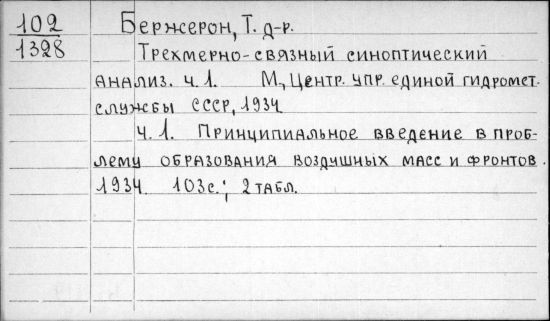 102 Бержерон, Т. д-р.
1328 Трехмерно-связный синоптический
анализ. ч.1. М, Центр. упр. единой гидромет.
службы СССР, 1934
ч.1. Принципиальное введение в проб-
лему образования воздушных масс и фронтов.
1934. 103с.; 2 табл.